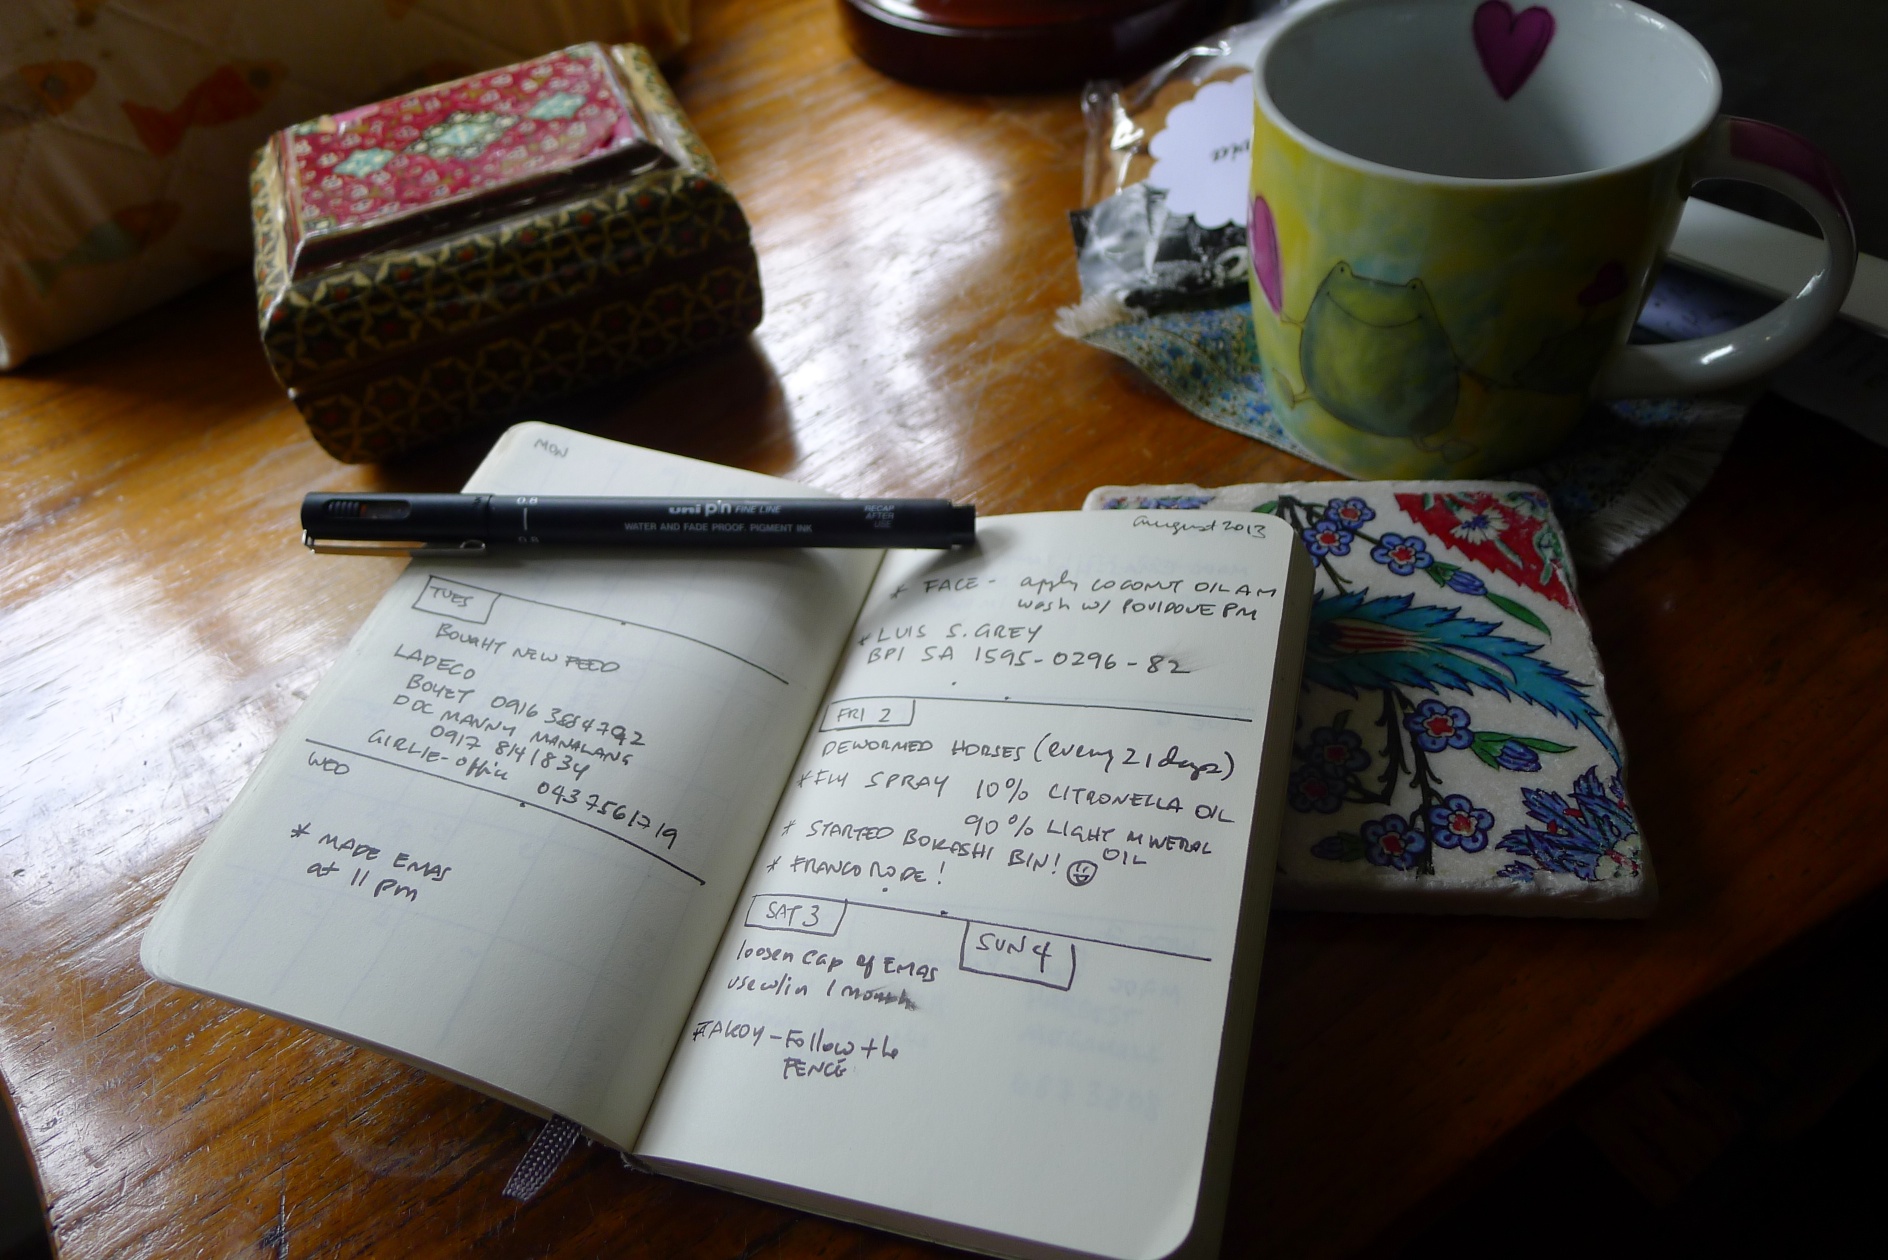 MON
uni pin FINE LINE
WATER AND FADE PROOF. PIGMENT INK
RECAP
AFTER
USE
0.8
0.8
TUES
BOUGHT NEW FEED
LADECO
BOYET 0916 3654792
DOC MANNY MANALANG
0917 8141834
GIRLIE-office 0437561719
WED
* MADE EMAS
at 11 pm
august 2013
* FACE - apply COCONUT OIL AM
wash w/ POVIDONE PM
* LUIS S. GREY
BPI SA 1595-0296-82
FRI 2
DEWORMED HORSES (every 21 days)
* FLY SPRAY 10% CITRONELLA OIL
90% LIGHT MINERAL
OIL
* STARTED BOKASHI BIN!
* FRANCO RODE!
SAT 3
SUN 4
loosen cap of EMAS
use w/in 1 month
- Follow the
FENCE